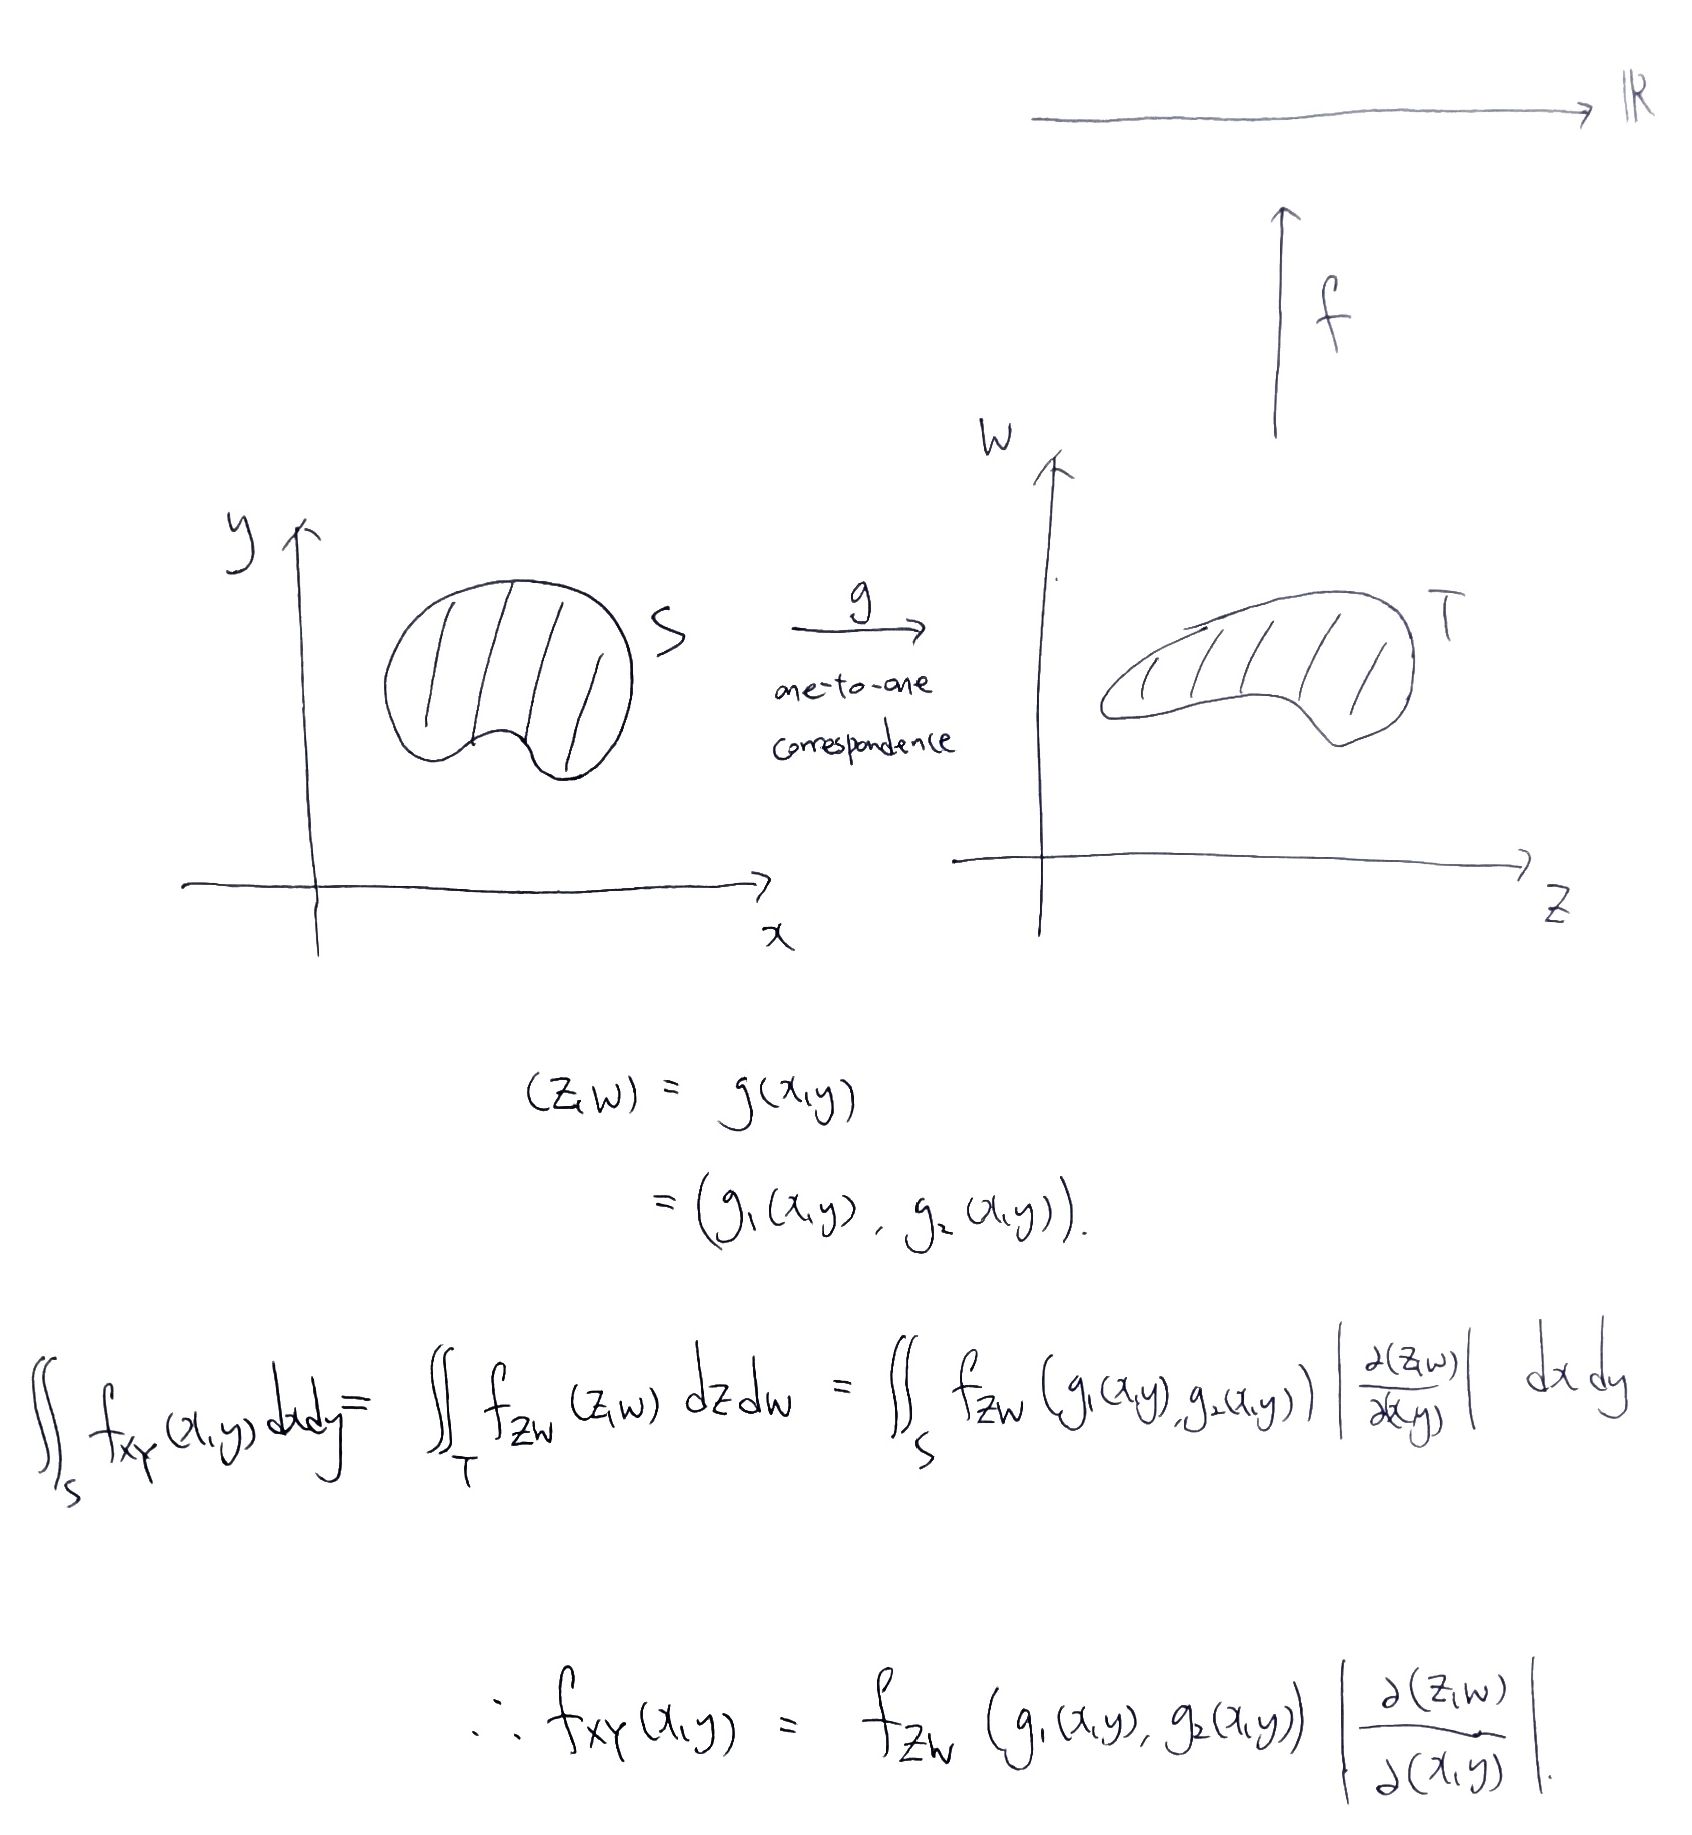 ℝ
f
w
y
g
S
T
one-to-one
correspondence
x
z
(z,w) = g(x,y)
= (g₁(x,y), g₂(x,y)).
∬_S f_XY(x,y) dxdy = ∬_T f_ZW(z,w) dzdw = ∬_S f_ZW(g₁(x,y), g₂(x,y)) |∂(z,w)/∂(x,y)| dxdy
∴ f_XY(x,y) = f_ZW(g₁(x,y), g₂(x,y)) |∂(z,w)/∂(x,y)|.